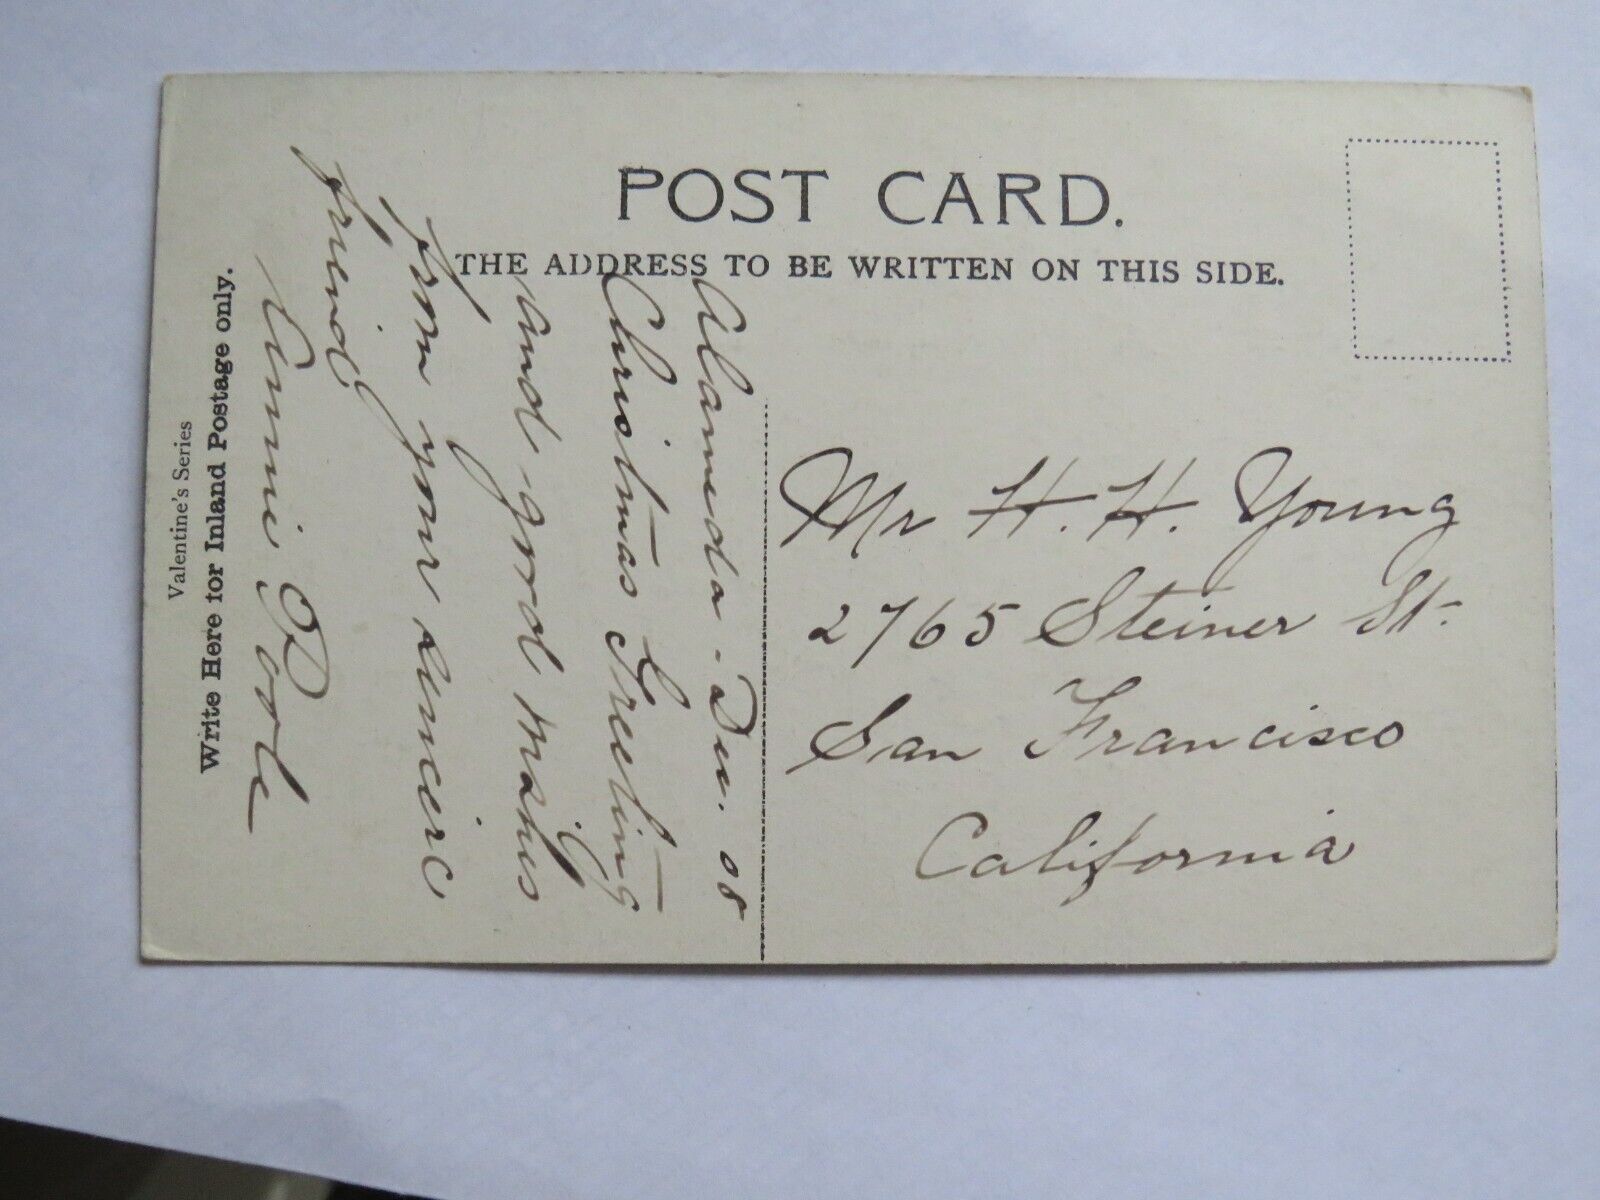 POST CARD.
THE ADDRESS TO BE WRITTEN ON THIS SIDE.
Valentine's Series
Write Here for Inland Postage only.
Alameda - Dec. 08
Christmas Greeting
and good wishes
from your sincere
friend
Annie Poole
Mr H. H. Young
2765 Steiner St.
San Francisco
California